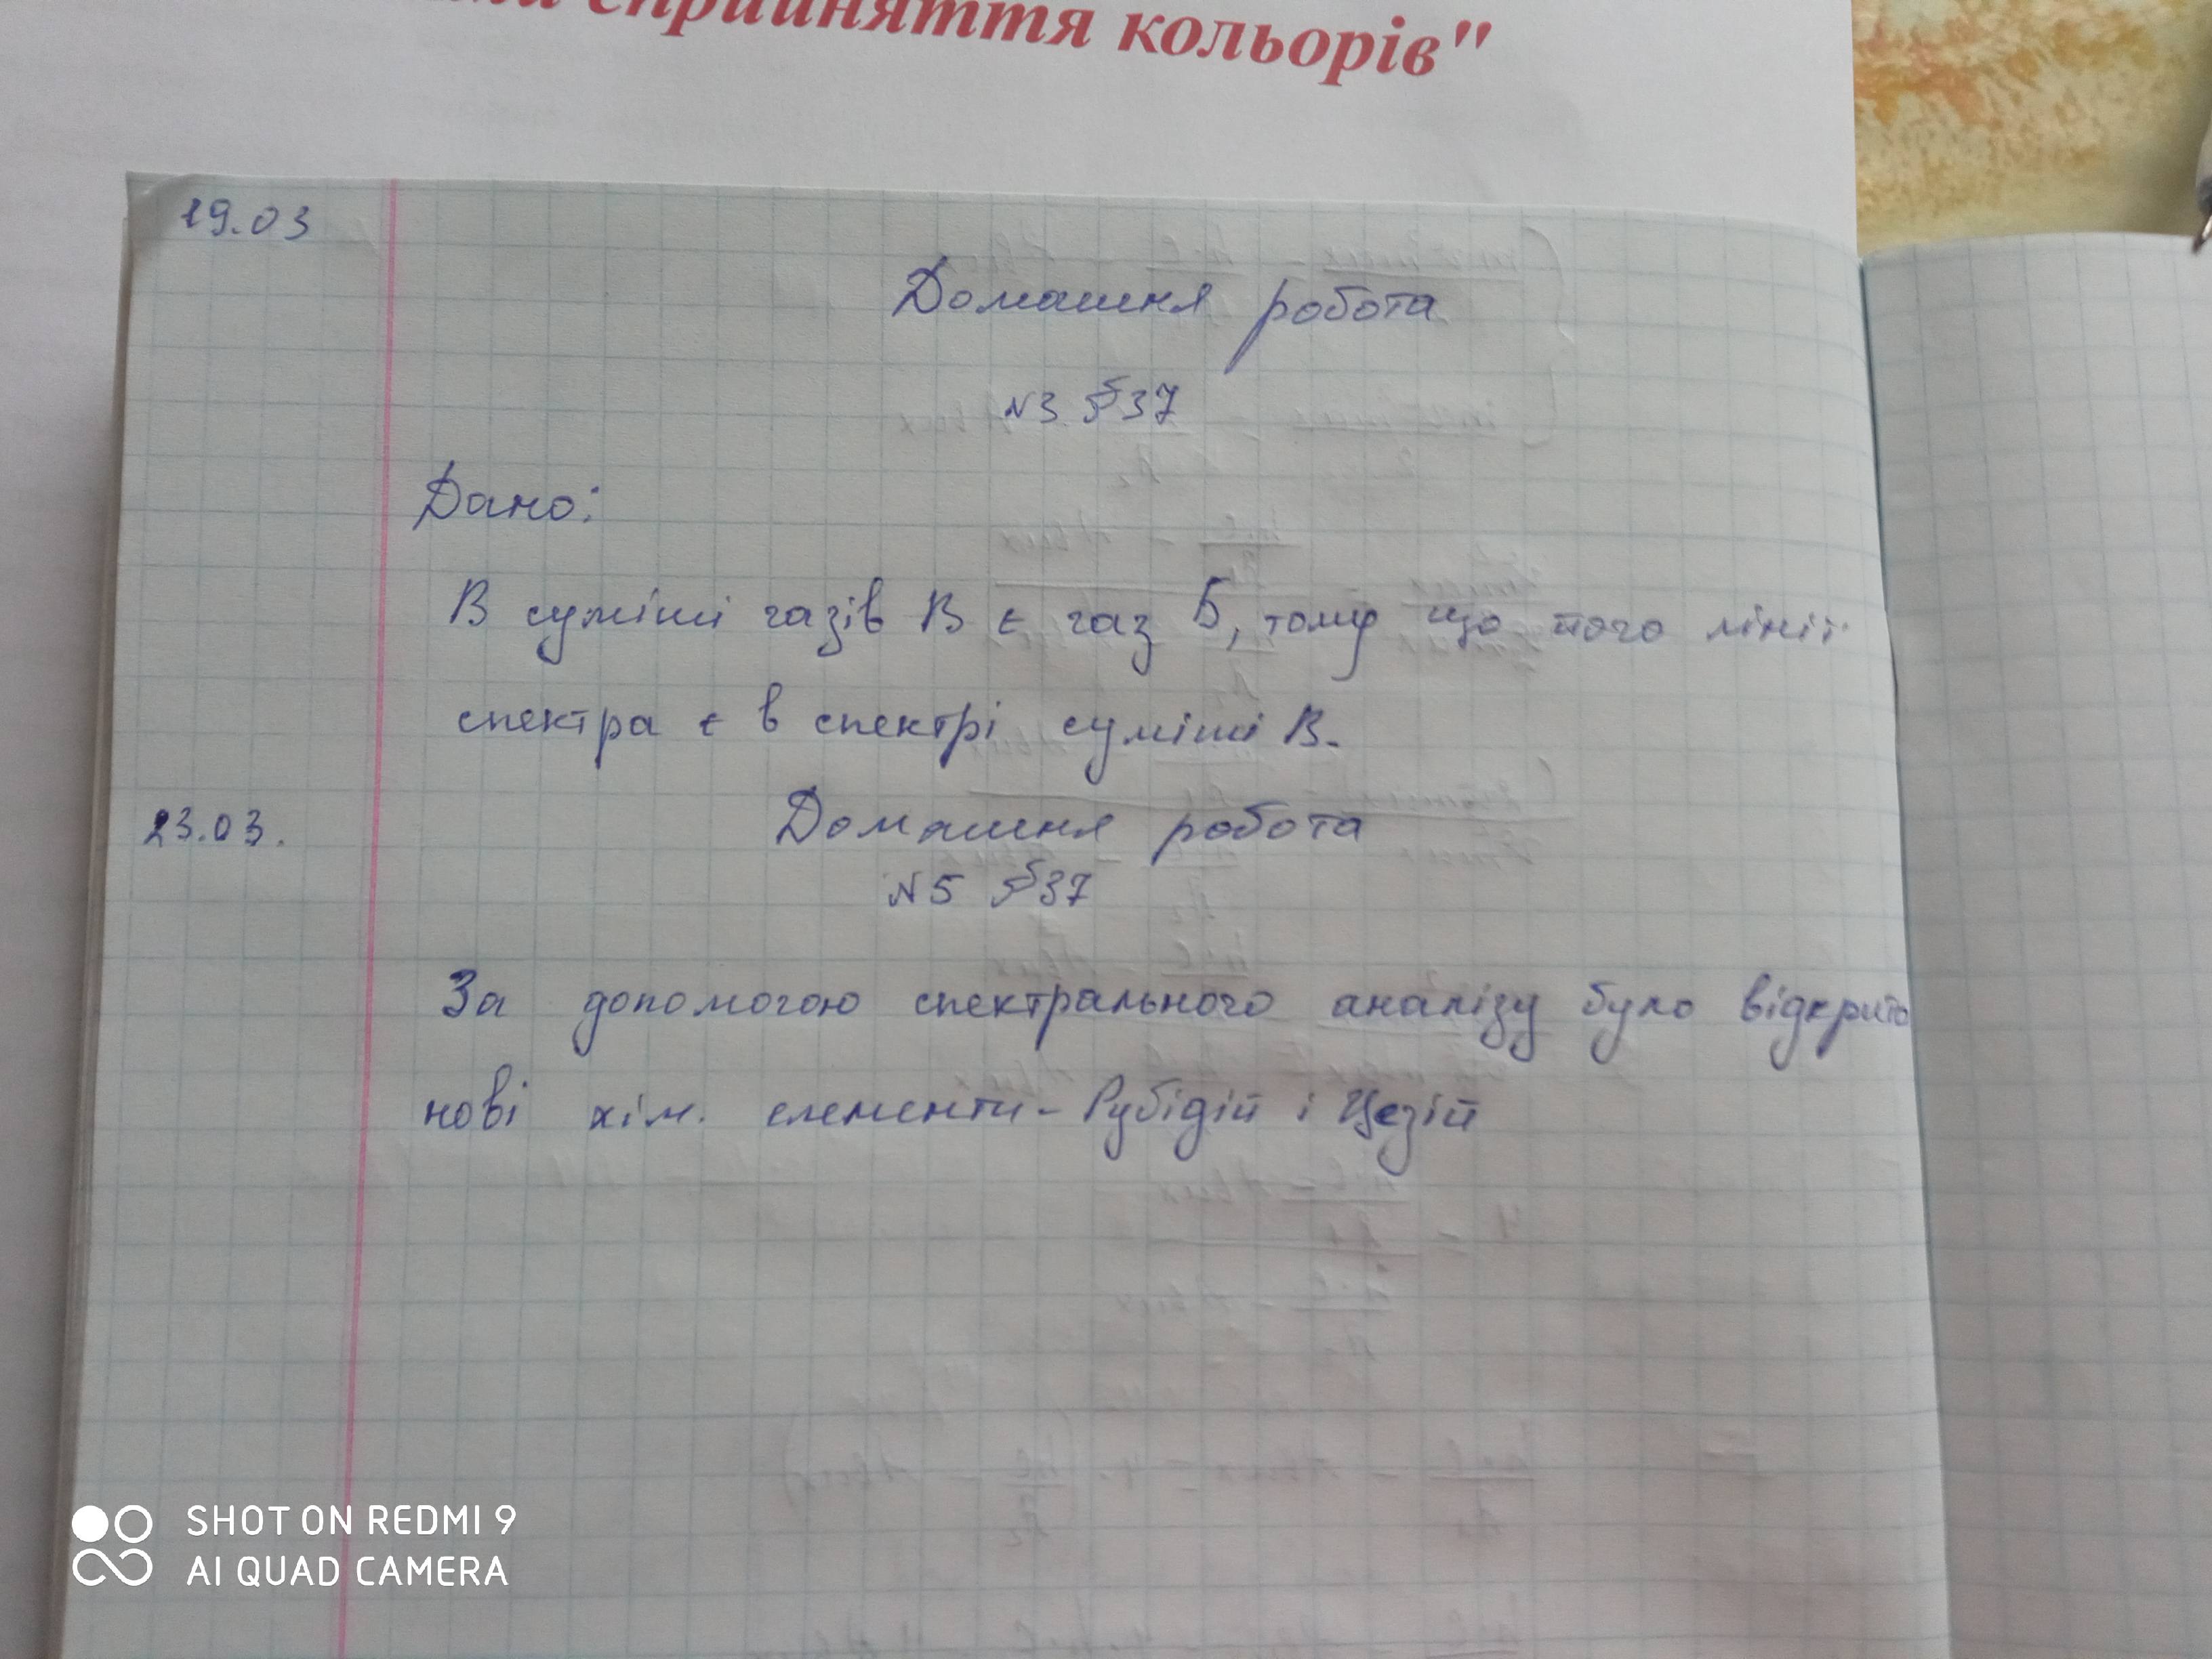 сприйняття кольорів"
19.03
Домашня робота
№3 §37
Дано:
В суміші газів В є газ Б, тому що його лінії
спектра є в спектрі суміші В.
23.03.
Домашня робота
№5 §37
За допомогою спектрального аналізу було відкрито
нові хім. елементи - Рубідій і Цезій
SHOT ON REDMI 9
AI QUAD CAMERA